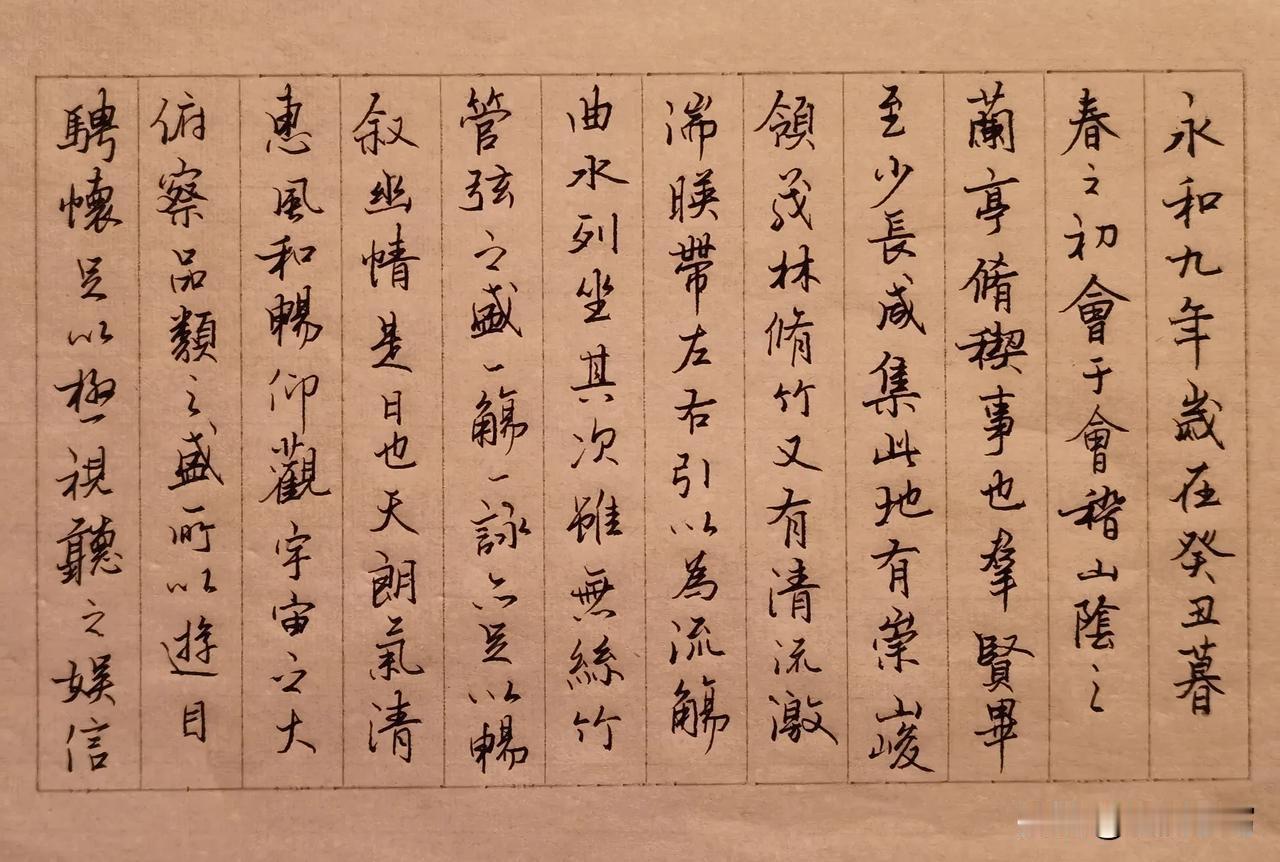 永和九年歲在癸丑暮
春之初會于會稽山陰之
蘭亭脩稧事也羣賢畢
至少長咸集此地有崇山峻
領茂林脩竹又有清流激
湍暎帶左右引以為流觴
曲水列坐其次雖無絲竹
管弦之盛一觴一詠亦足以暢
叙幽情是日也天朗氣清
惠風和暢仰觀宇宙之大
俯察品類之盛所以遊目
騁懷足以極視聽之娛信